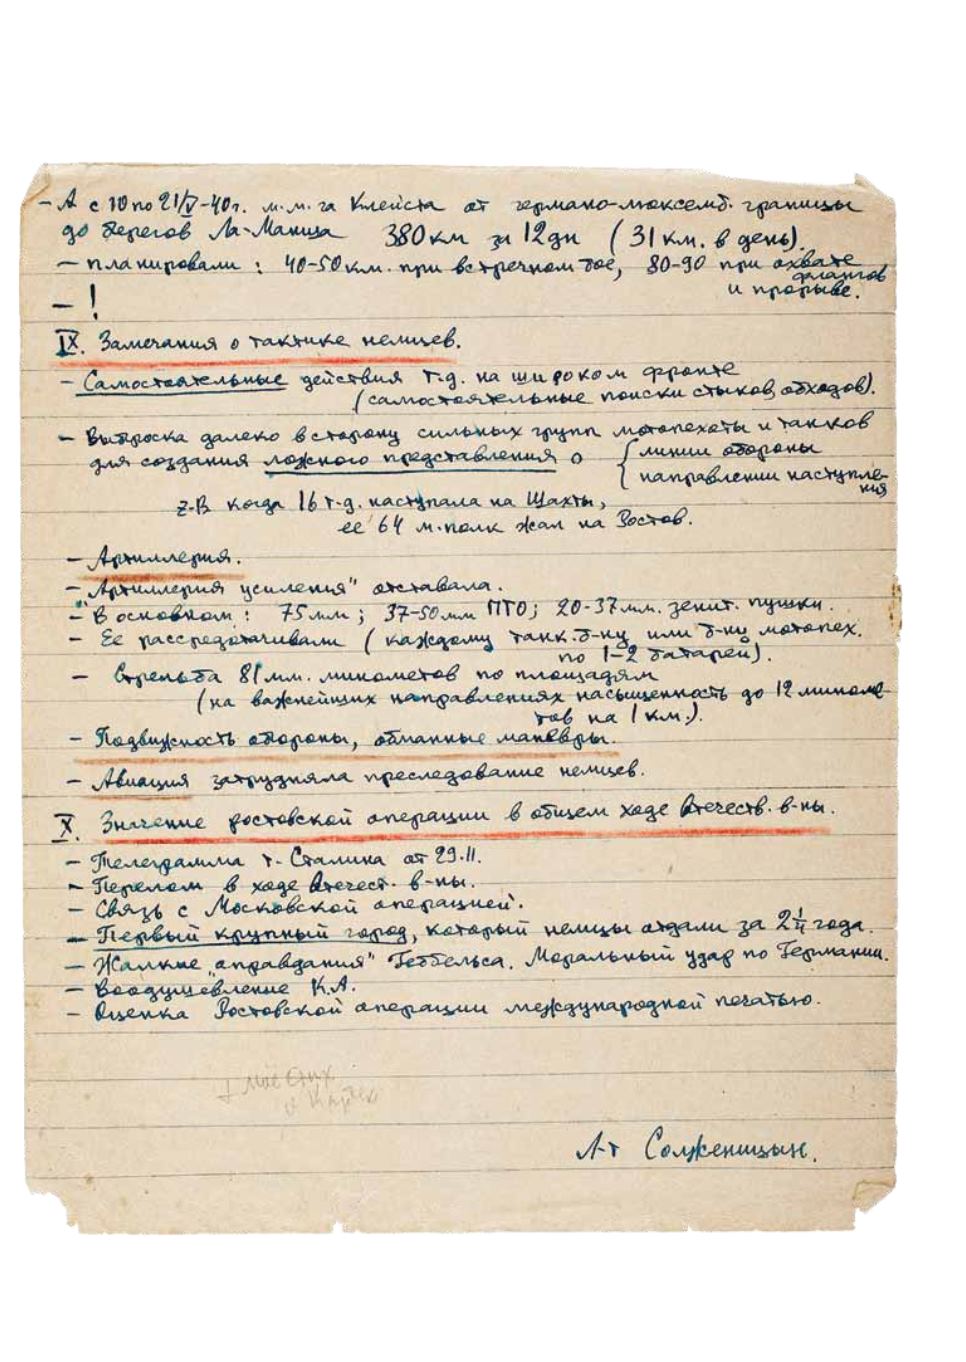 - А с 10 по 21/V-40 г. м.м. га Клейста от германо-люксемб. границы
до берегов Ла-Манша 380 км за 12 дн (31 км. в день).
- планировали: 40-50 км. при встречном бое, 80-90 при охвате
флангов
и прорыве.
- !
IX. Замечания о тактике немцев.
- Самостоятельные действия т.д. на широком фронте
(самостоятельные поиски стыков, обходов).
- Выброска далеко в сторону сильных групп мотопехоты и танков
для создания ложного представления о { линии обороны
направлении наступле-
ния
z.B. когда 16 т.д. наступала на Шахты,
ее 64 м.полк жал на Ростов.
- Артиллерия.
- "Артиллерия усиления" отставала.
- В основном: 75 мм; 37-50 мм ПТО; 20-37 мм. зенит. пушки.
- Ее рассредотачивали (каждому танк. б-ну или б-ну мотопех.
по 1-2 батареи).
- Стрельба 81 мм. минометов по площадям
(на важнейших направлениях насыщенность до 12 миноме-
тов на 1 км.).
- Подвижность обороны, обманные маневры.
- Авиация затрудняла преследование немцев.
X. Значение ростовской операции в общем ходе Отечеств. в-ны.
- Телеграмма т. Сталина от 29.11.
- Перелом в ходе Отечест. в-ны.
- Связь с Московской операцией.
- Первый крупный город, который немцы отдали за 2 1/4 года.
- Жалкие „оправдания" Геббельса. Моральный удар по Германии.
- Воодушевление К.А.
- Оценка Ростовской операции международной печатью.
Л-т Солженицын.